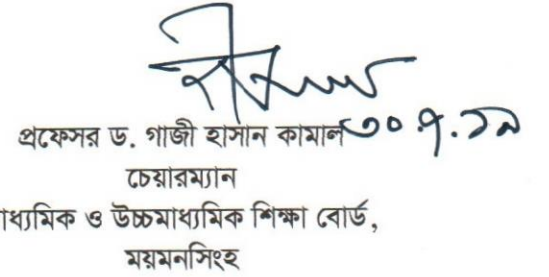 প্রফেসর ড. গাজী হাসান কামাল ৩০.৭.১৯
চেয়ারম্যান
াধ্যমিক ও উচ্চমাধ্যমিক শিক্ষা বোর্ড,
ময়মনসিংহ